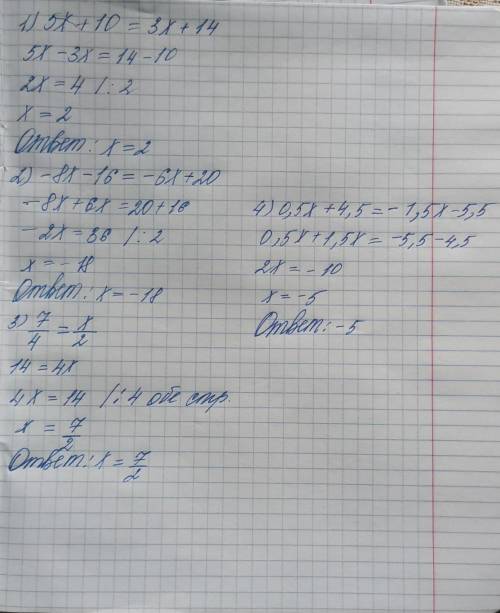 1) 5x + 10 = 3x + 14
5x - 3x = 14 - 10
2x = 4 /: 2
x = 2
Ответ: x = 2
2) -8x - 16 = -6x + 20
-8x + 6x = 20 + 16
-2x = 36 /: 2
x = -18
Ответ: x = -18
3) 7/4 = x/2
14 = 4x
4x = 14 /: 4 обе стр.
x = 7/2
Ответ: x = 7/2
4) 0,5x + 4,5 = -1,5x - 5,5
0,5x + 1,5x = -5,5 - 4,5
2x = -10
x = -5
Ответ: -5